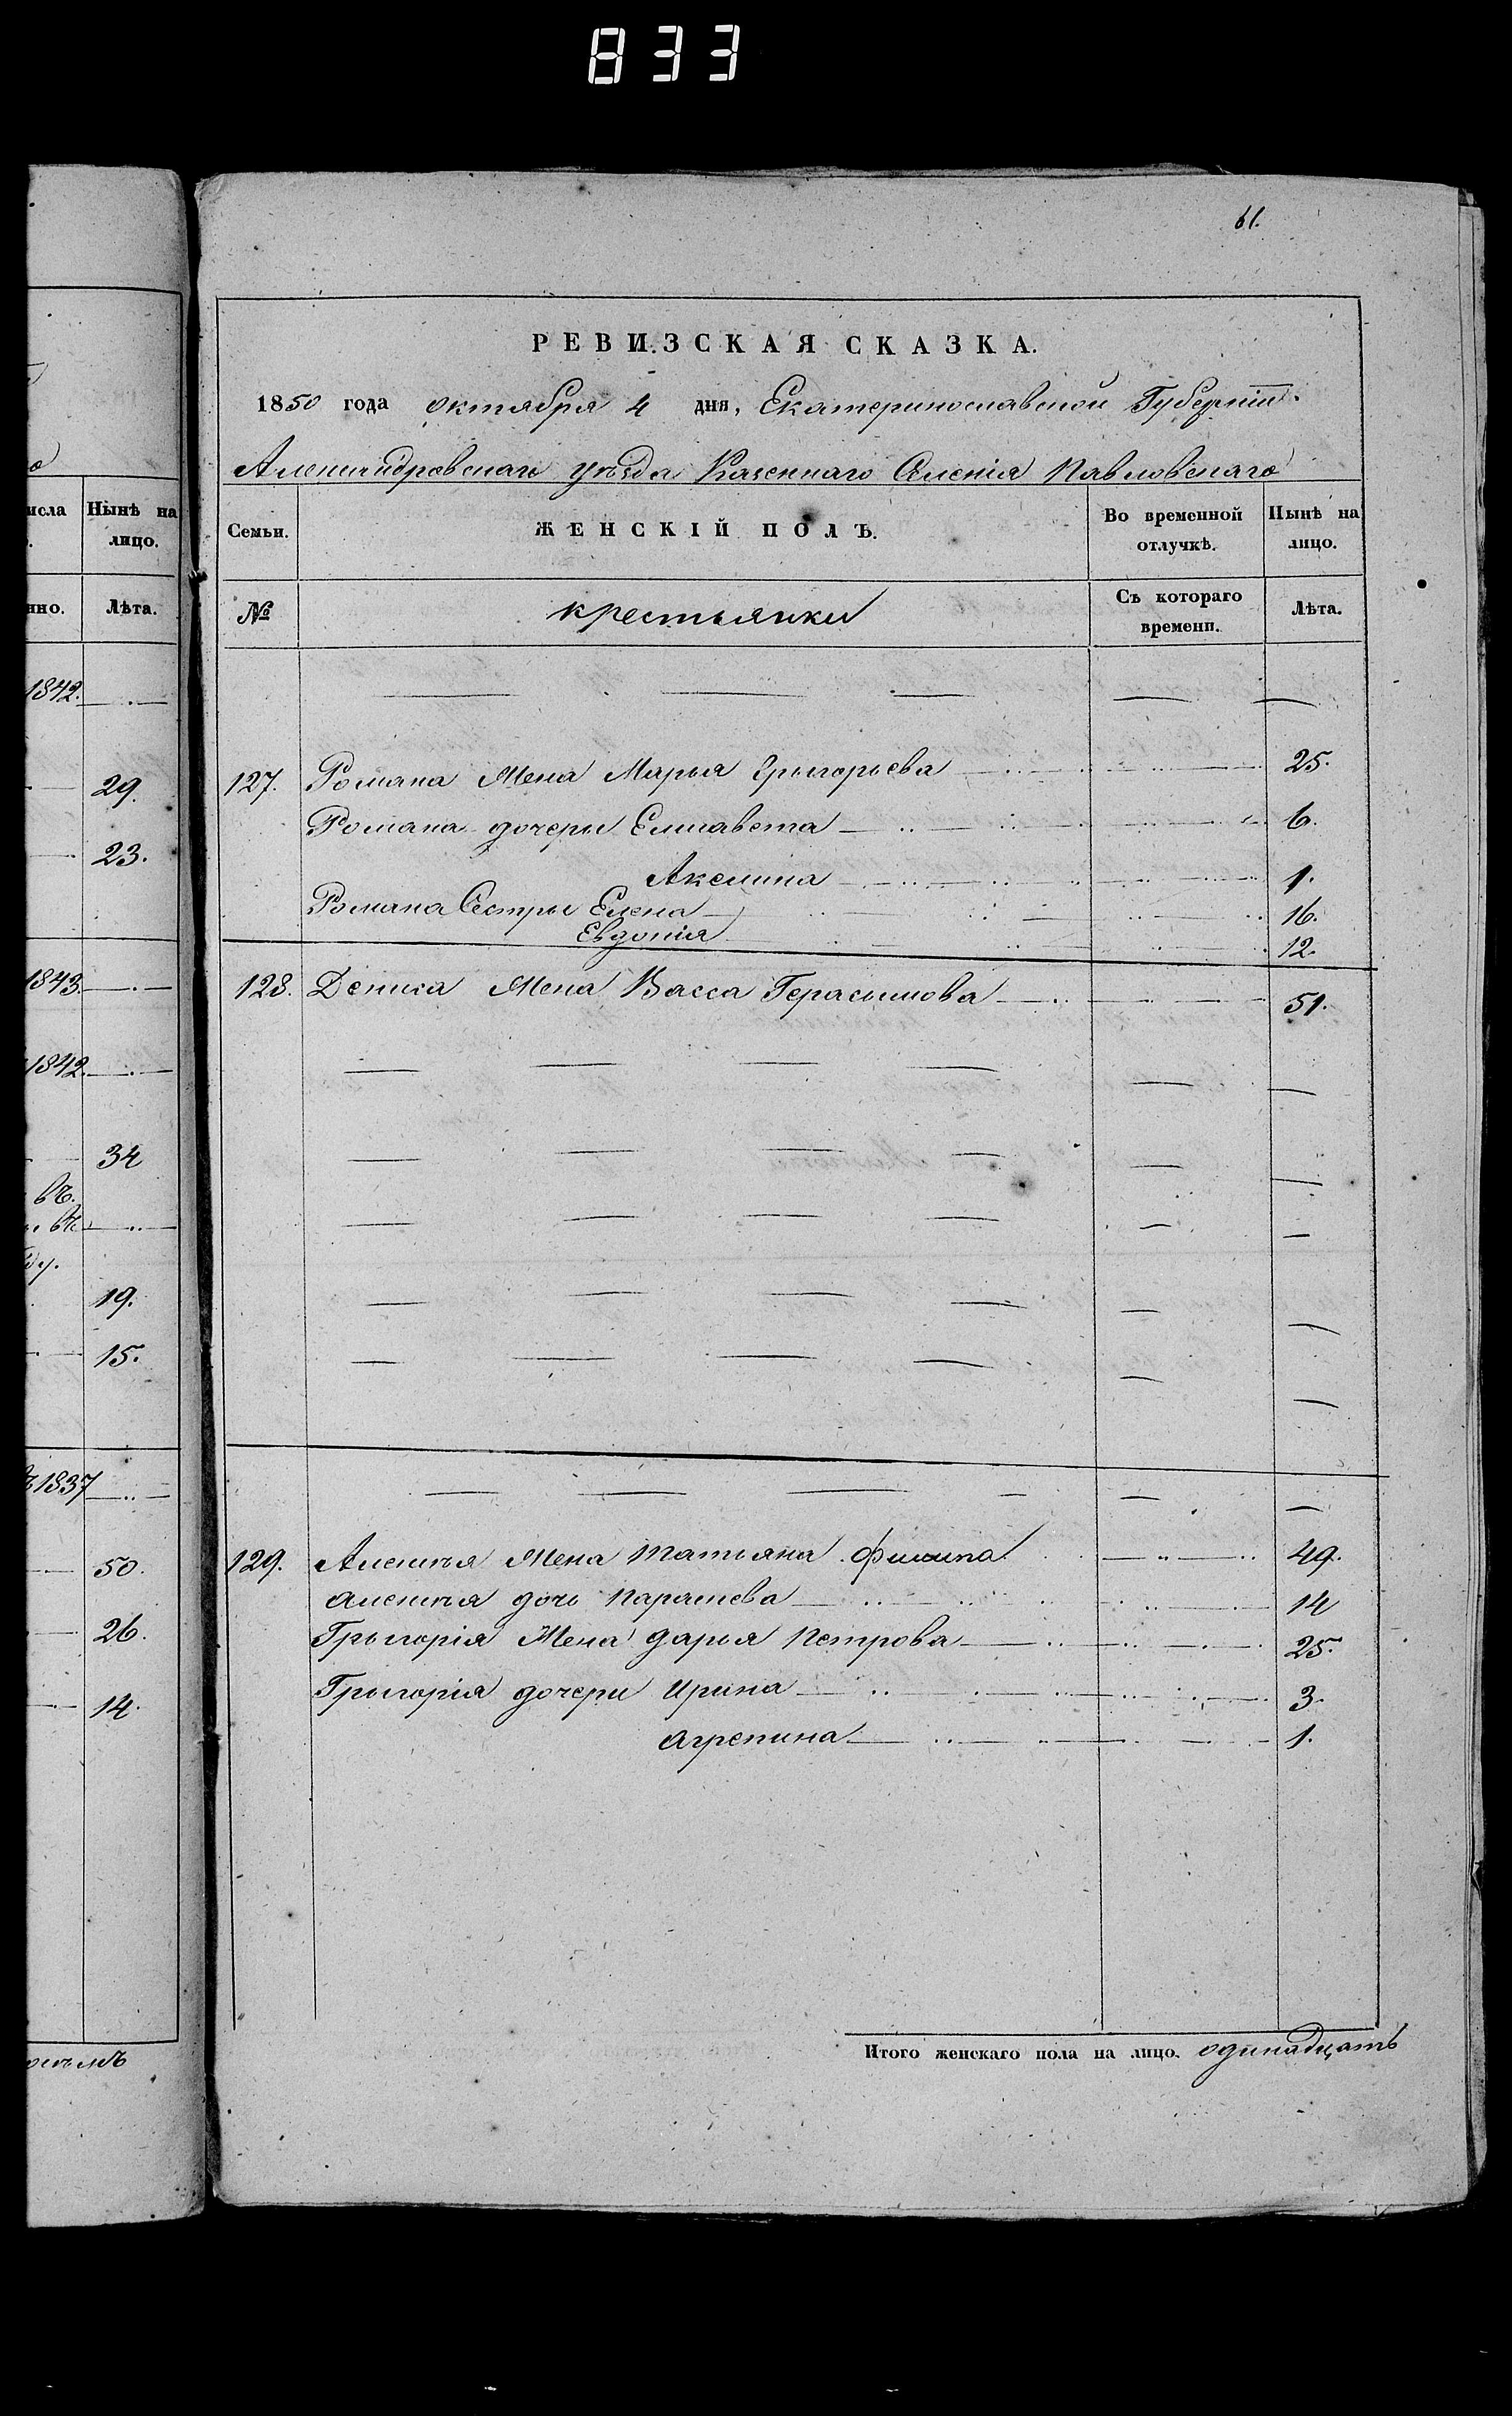 833
61.
РЕВИЗСКАЯ СКАЗКА.
1850 года октября 4 дня, Екатеринославской Губерніи
Александровскаго уѣзда Казеннаго Селенія Павловскаго
исла
Нынѣ на
лицо.
нно.
Лѣта.
1842.
29.
23.
1843.
1842.
34
въ
19.
15.
1837
50.
26.
14.
Семьи.
ЖЕНСКІЙ ПОЛЪ.
Во временной
отлучкѣ.
Нынѣ на
лицо.
№
крестьянки
Съ котораго
времени.
Лѣта.
127. Романа Жена Марья Грыгорьева 25.
Романа дочери Елисавета 6.
Акелина 1.
Романа Сестры Елена 16.
Евдокія 12.
128. Дениса Жена Васса Герасимова 51.
129. Алексѣя Жена татьяна 49.
Алексѣя дочь Параскева 14
Грыгорія Жена дарья Петрова 25.
Грыгорія дочери Ирина 3.
агрепина 1.
Итого женскаго пола на лицо. одинадцать